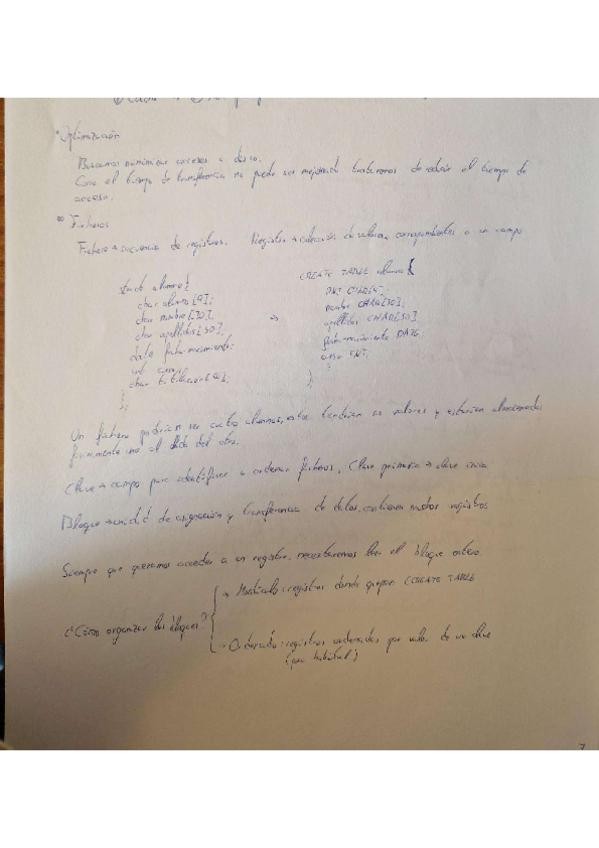 *Optimización
Buscamos minimizar accesos a disco.
Como el tiempo de transferencia no puede ser mejorado trataremos de reducir el tiempo de
acceso.
* Ficheros
Fichero → secuencia de registros. Registro → colección de valores correspondientes a un campo
struct alumno {
char alumno[9];
char nombre[30];
char apellidos[50];
date fecha-nacimiento;
int curso;
char titulacion[];
};
⇒
CREATE TABLE alumno {
DNI CHAR[9];
nombre CHAR[30];
apellidos CHAR[50];
fecha-nacimiento DATE;
curso INT;
}
Un fichero podrían ser cuatro alumnos, estos tendrían sus valores y estarían almacenados
físicamente uno al lado del otro.
Clave → campo para identificar u ordenar ficheros, Clave primaria → clave única
Bloque → unidad de asignación y transferencia de datos, contienen muchos registros
Siempre que queramos acceder a un registro, necesitaremos leer el bloque entero.
¿Cómo organizar los bloques?
→ Montículo: registros donde quepan (CREATE TABLE
→ Ordenado: registros ordenados por valor de una clave
(poco habitual)
7